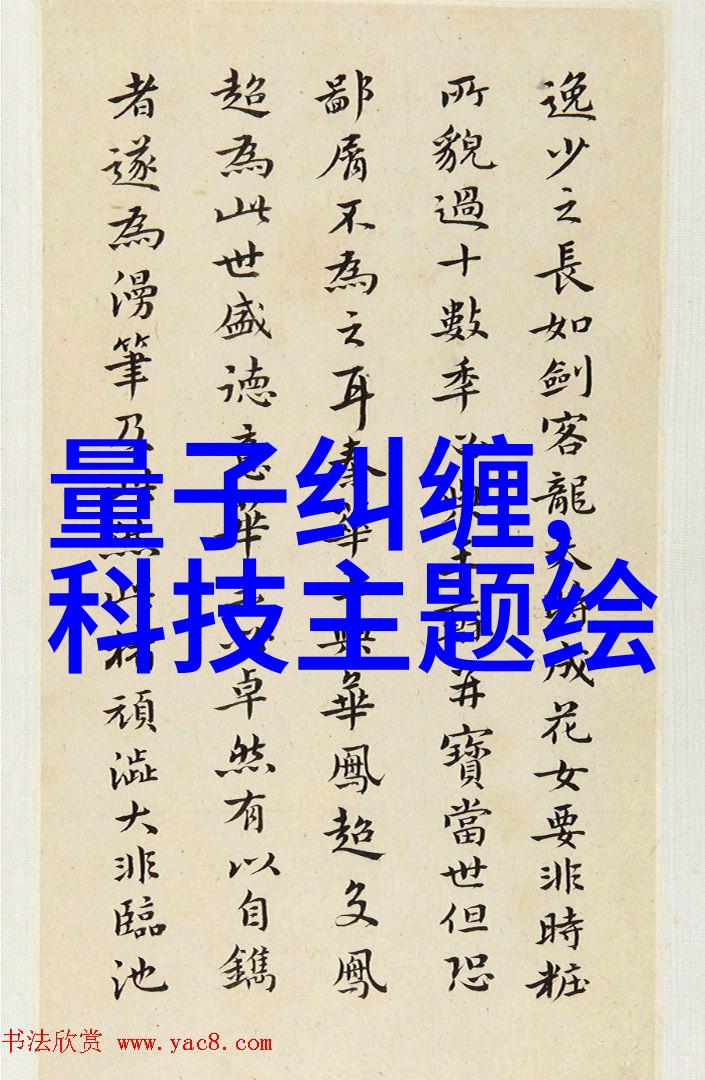 逸少之長如劍客龍時成花女要非時粧
所貌過十數季寶當世但恐
鄙屑不為之耳秦華鳳超文鳳
超為此世盛德卓然有以自鐫
者遂為漫筆乃頑澁大非臨池
量子纠缠,
科技主题绘
书法欣赏 www.yac8.com